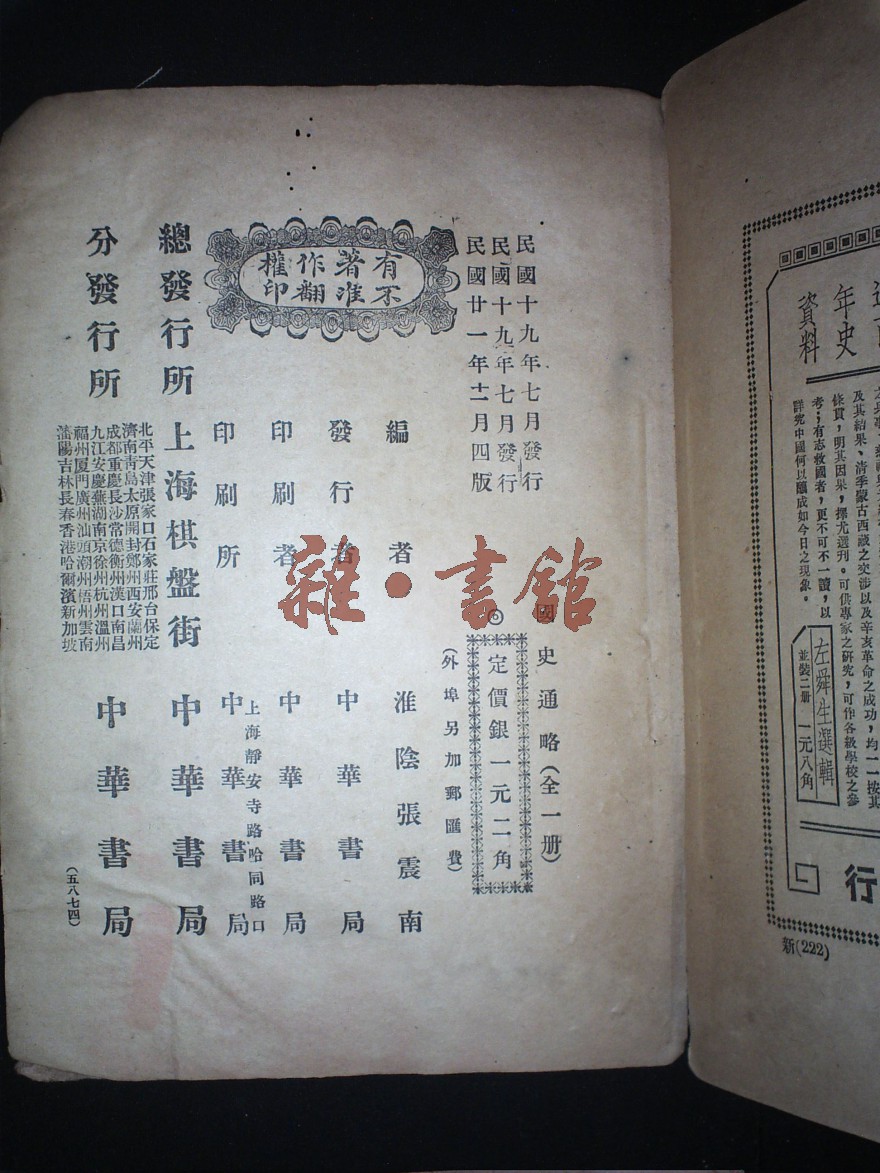 民國十九年七月發行
民國十九年七月發行
民國廿一年十二月四版
國史通略(全一册)
◎
定價銀一元二角
(外埠另加郵匯費)
有著作權
不准翻印
編者 淮陰張震南
發行者 中華書局
印刷者 中華書局
上海靜安寺路哈同路口
印刷所 中華書局
總發行所 上海棋盤街 中華書局
分發行所 中華書局
北平天津張家口石家莊邢台保定
濟南靑島太原開封鄭州西安蘭州
成都重慶長沙常德衡州漢口南昌
九江安慶蕪湖南京徐州杭州溫州
福州厦門廣州汕頭潮州梧州雲南
瀋陽吉林長春香港哈爾濱新加坡
(五八七四)
雜·書館
年史
資料
及其結果、清季蒙古西藏之交涉以及辛亥革命之成功,均一一按其
條貫,明其因果,擇尤選刊。可供專家之硏究,可作各級學校之參
考;有志救國者,更不可不一讀,以
詳究中國何以釀成如今日之現象。
左舜生選輯
並裝二册 一元八角
行
新(222)